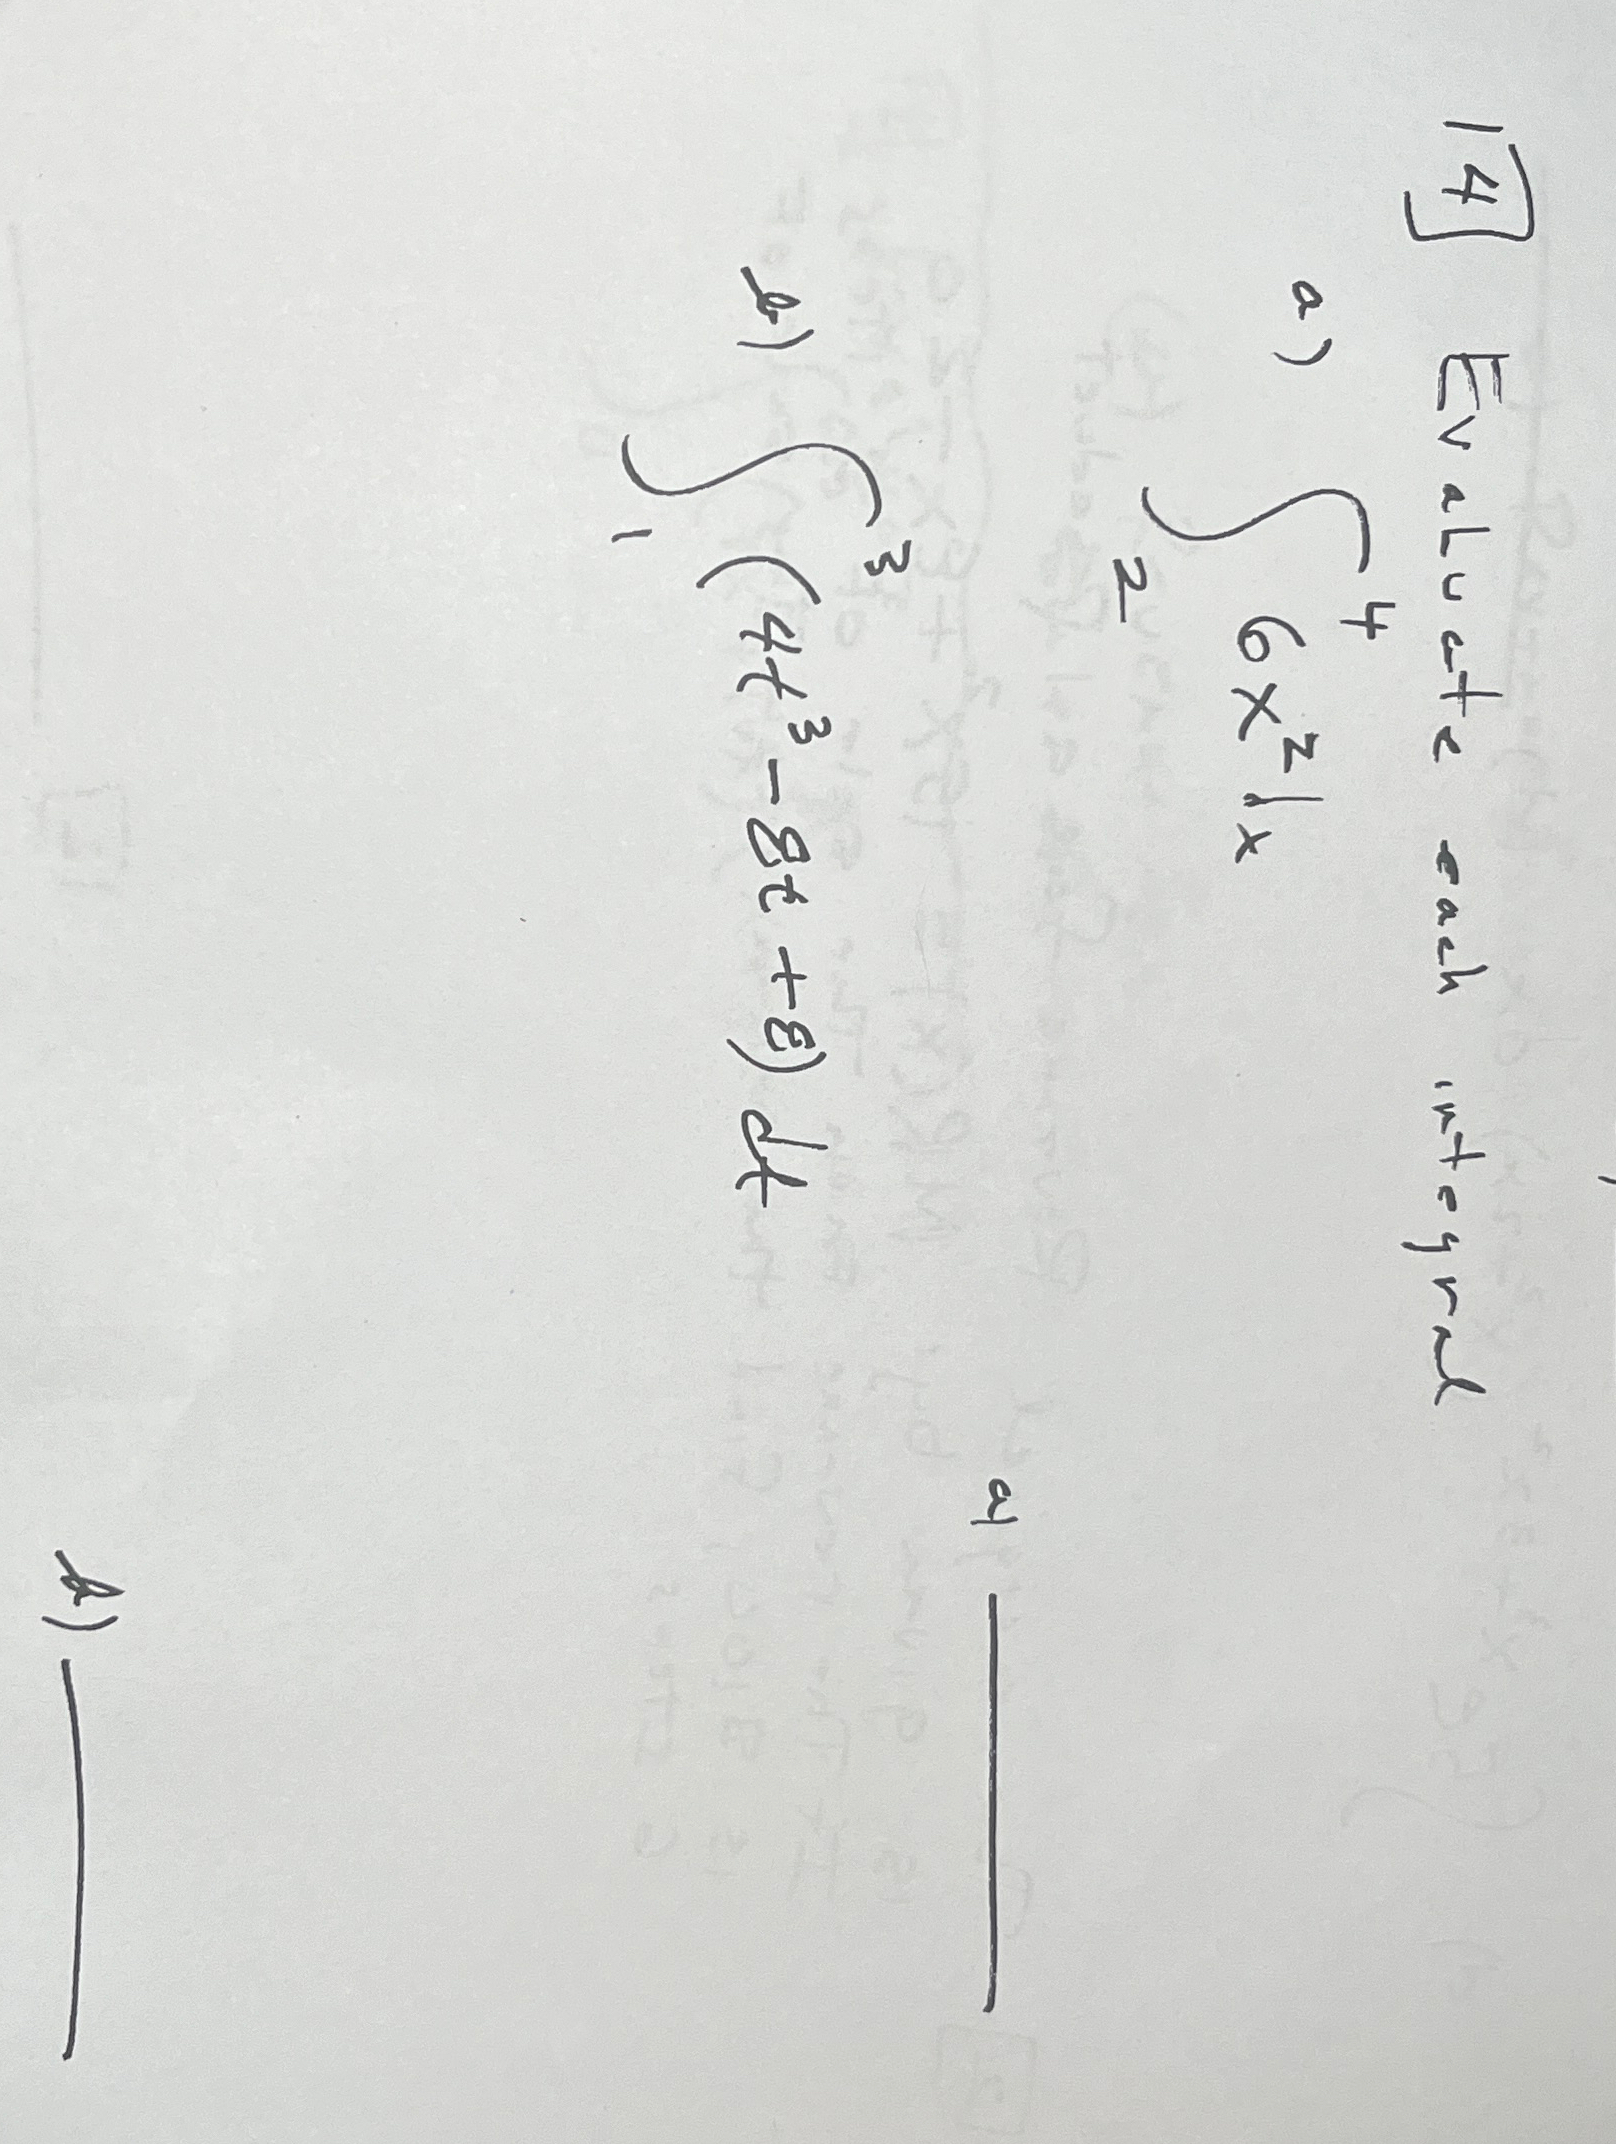 14 Evaluate each integral
a) ∫₂⁴ 6x² dx
a) ______
b) ∫₁³ (4t³ - 8t + 8) dt
b) ______